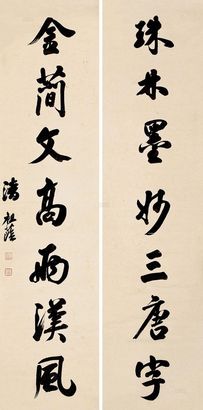 珠林墨妙三唐字
金薤文高兩漢風
潘祖蔭